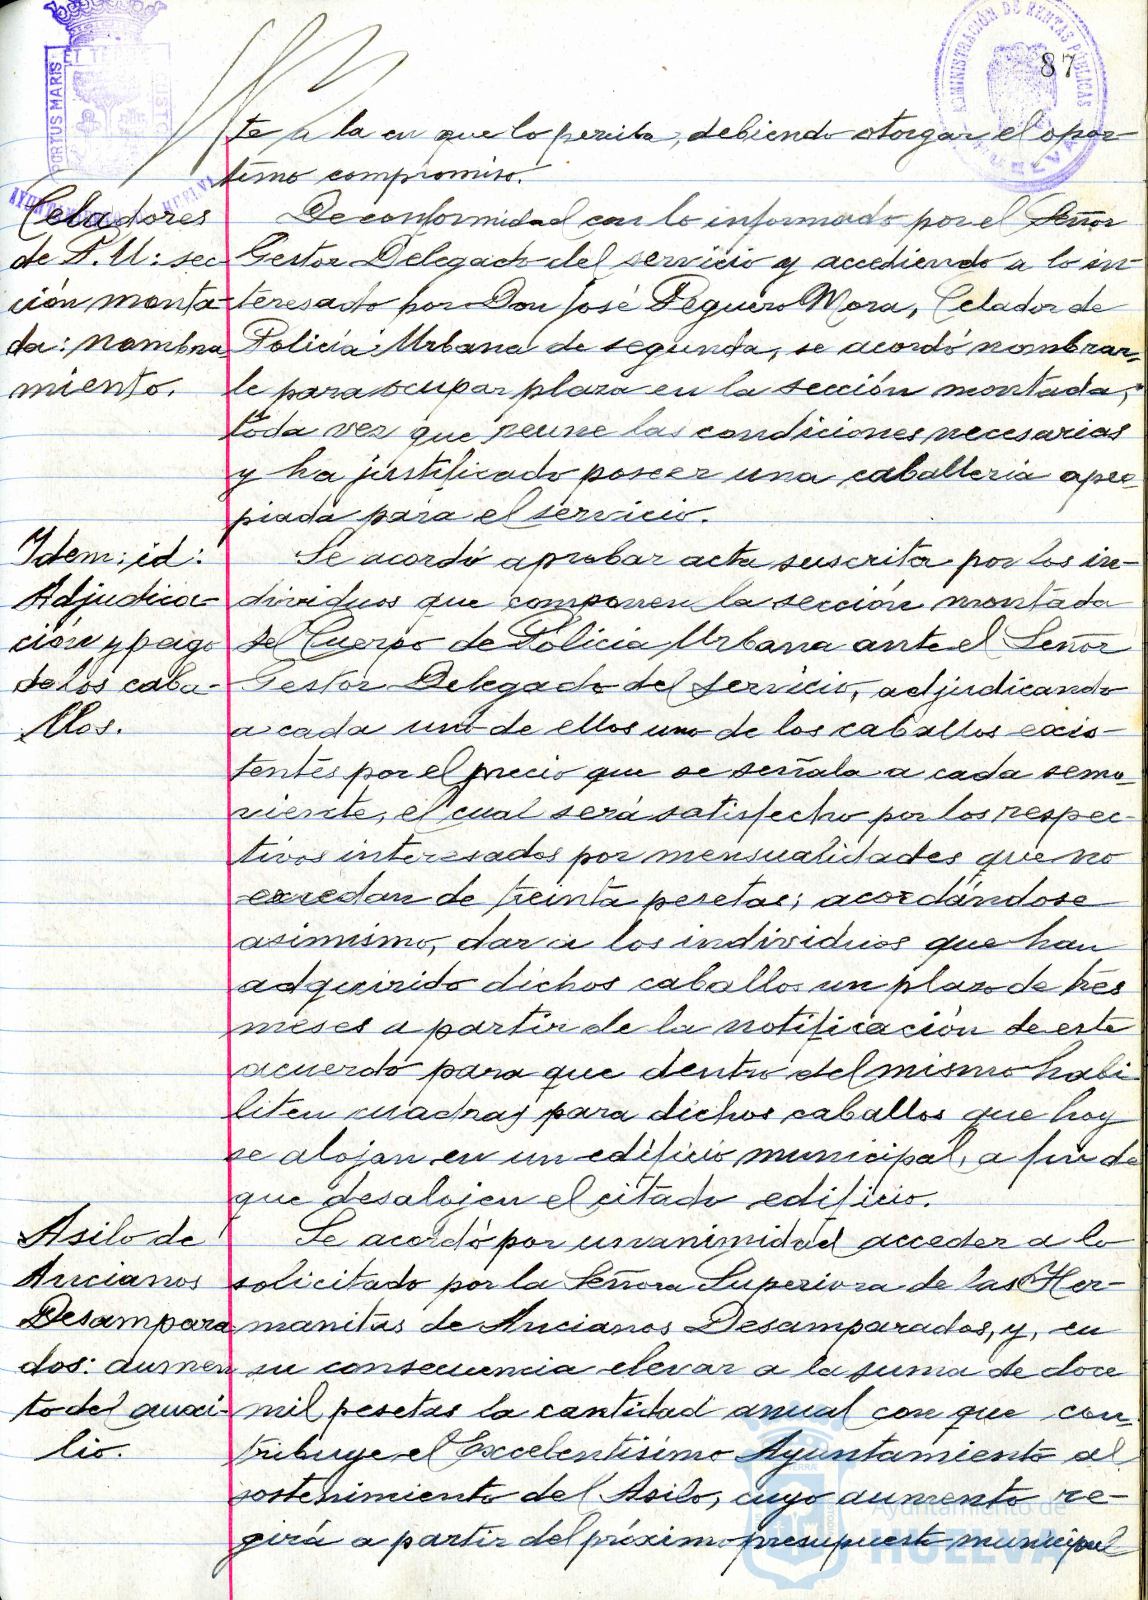 87
PORTUS MARIS ET TERRÆ CUSTO
ADMINISTRACIÓN DE RENTAS PÚBLICAS
HUELVA
te a la en que lo perciba, debiendo otorgar el opor-
tuno compromiso.
Celadores
de P. U: sec
ción monta
da: nombra
miento.
De conformidad con lo informado por el Señor
Gestor Delegado del servicio y accediendo a lo in-
teresado por Don José Peguero Mora, Celador de
Policía Urbana de segunda, se acordó nombrar-
le para ocupar plaza en la sección montada,
toda vez que reune las condiciones necesarias
y ha justificado poseer una caballeria apro-
piada para el servicio.
Idem: id:
Adjudica-
ción y pago
de los caba-
llos.
Se acordó aprobar acta suscrita por los in-
dividuos que componen la sección montada
del Cuerpo de Policia Urbana ante el Señor
Gestor Delegado del servicio, adjudicando
a cada uno de ellos uno de los caballos exis-
tentes por el precio que se señala a cada semo-
viente, el cual será satisfecho por los respec-
tivos interesados por mensualidades que no
excedan de treinta pesetas; acordándose
asimismo, dar a los individuos que han
adquirido dichos caballos un plazo de tres
meses a partir de la notificación de este
acuerdo para que dentro del mismo habi-
liten cuadras para dichos caballos que hoy
se alojan en un edificio municipal, a fin de
que desalojen el citado edificio.
Asilo de
Ancianos
Desampara
dos: aumen
to del auxi-
lio.
Se acordó por unanimidad acceder a lo
solicitado por la Señora Superiora de las Her-
manitas de Ancianos Desamparados, y, en
su consecuencia elevar a la suma de doce
mil pesetas la cantidad anual con que con-
tribuye el Excelentísimo Ayuntamiento al
sostenimiento del Asilo, cuyo aumento re-
girá a partir del próximo presupuesto municipal
Ayuntamiento de
HUELVA